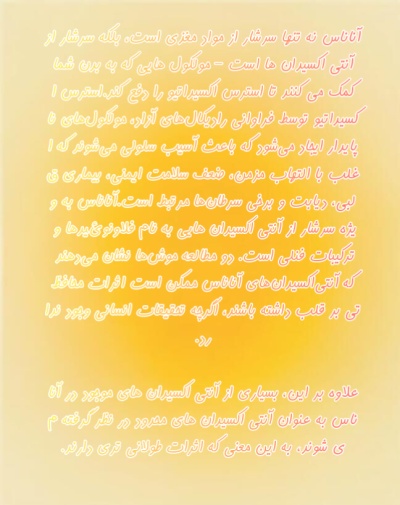 آناناس نه تنها سرشار از مواد مغذی است، بلکه سرشار از
آنتی اکسیدان ها است - مولکول هایی که به بدن شما
کمک می کنند تا استرس اکسیداتیو را دفع کند.استرس ا
کسیداتیو توسط فراوانی رادیکال‌های آزاد، مولکول‌های نا
پایدار ایجاد می‌شود که باعث آسیب سلولی می‌شوند که ا
غلب با التهاب مزمن، ضعف سلامت ایمنی، بیماری ق
لبی، دیابت و برخی سرطان‌ها مرتبط است.آناناس به و
یژه سرشار از آنتی اکسیدان هایی به نام فلاونوئیدها و
ترکیبات فنلی است. دو مطالعه موش‌ها نشان می‌دهند
که آنتی‌اکسیدان‌های آناناس ممکن است اثرات محافظ
تی بر قلب داشته باشند، اگرچه تحقیقات انسانی وجود ندا
رد.
علاوه بر این، بسیاری از آنتی اکسیدان های موجود در آنا
ناس به عنوان آنتی اکسیدان های محدود در نظر گرفته م
ی شوند، به این معنی که اثرات طولانی تری دارند.